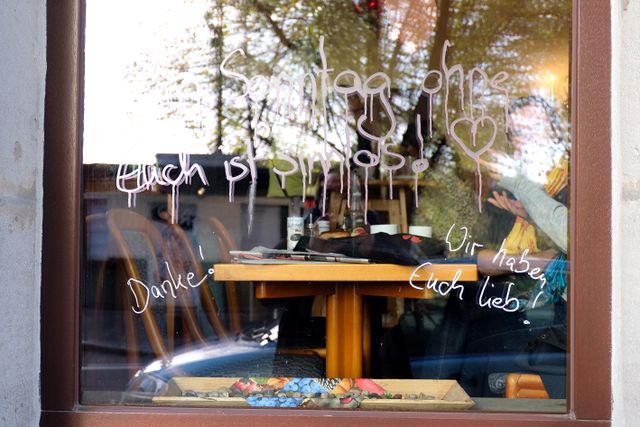 Sonntag ohne
Euch ist sinnlos! ♡
Danke!
Wir haben
Euch lieb!